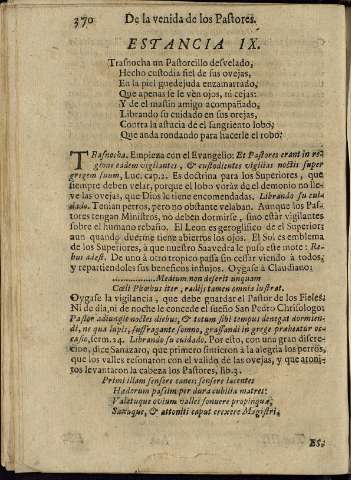 370 De la venida de los Pastores.
ESTANCIA IX.
Trasnocha un Pastorcillo desvelado,
Hecho custodia fiel de sus ovejas,
En la piel guedejuda enzamarrado,
Que apenas se le ven ojos, ni cejas:
Y de el mastin amigo acompañado,
Librando su cuidado en sus orejas,
Contra la astucia de el sangriento lobo,
Que anda rondando para hacerle el robo.
TRasnocha. Empieza con el Evangelio: Et Pastores erant in re-
gione eadem vigilantes, & custodientes vigilias noctis super
gregem suum, Luc. cap. 2. Es doctrina para los Superiores, que
siempre deben velar, porque el lobo voráz de el demonio no lle-
ve las ovejas, que Dios le tiene encomendadas. Librando su cui-
dado. Tenian perros, pero no obstante velaban. Aunque los Pas-
tores tengan Ministros, no deben dormirse, sino estár vigilantes
sobre el humano rebaño. El Leon es geroglifico de el Superior;
aun quando duerme tiene abiertos los ojos. El Sol es emblema
de los Superiores, à que nuestro Saavedra le puso este mote: Re-
bus adest. De uno à otro tropico passa sin cessar viendo à todos,
y repartiendoles sus beneficos influjos. Oygase à Claudiano:
Medium non deserit unquam
Cœli Phœbus iter, radijs tamen omnia lustrat.
Oygase la vigilancia, que debe guardar el Pastor de los Fieles.
Ni de dia, ni de noche le concede el sueño San Pedro Chrisologo:
Pastor adiungit noctes diebus, & totum sibi tempus denegat dormien-
di, ne qua lupis, suffragante somno, grassandi in grege præbeatur oc-
casio, serm. 24. Librando su cuidado. Por esto, con una gran discre-
cion, dice Sanazaro, que primero sintieron à la alegria los perros,
que los valles resonaron con el valido de las ovejas, y que atoni-
tos levantaron la cabeza los Pastores, lib. 3.
Primi illam sensere canes; sensere iacentes
Hædorum passim per dura cubilia matres:
Valetuque ovium vallei sonuere propinquæ,
Saxaque, & attoniti caput erexere Magistri.
ES-